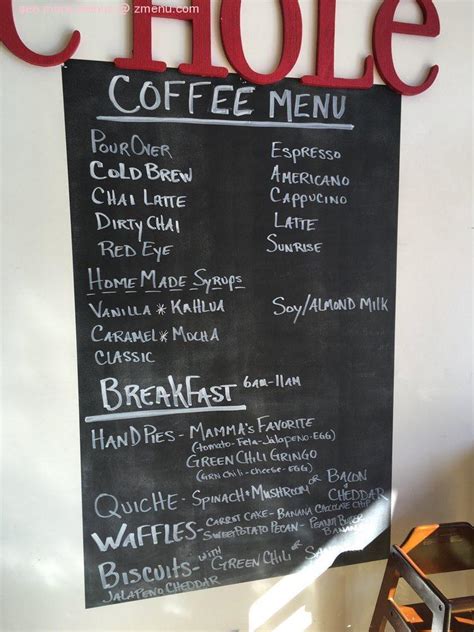 @ zmenu.com
C HOLE
COFFEE MENU
POUROVER
COLD BREW
CHAI LATTE
DIRTY CHAI
RED EYE
ESPRESSO
AMERICANO
CAPPUCINO
LATTE
SUNRISE
HOMEMADE SYRUPS
VANILLA * KAHLUA
CARAMEL * MOCHA
CLASSIC
SOY/ALMOND MILK
BREAKFAST 6AM-11AM
HANDPIES - MAMMA'S FAVORITE
(TOMATO-FETA-JALAPENO-EGG)
GREEN CHILI GRINGO
(GRN CHILI-CHEESE-EGG)
QUICHE - SPINACH & MUSHROOM OR BACON & CHEDDAR
WAFFLES - CARROT CAKE - BANANA CHOCOLATE CHIP
SWEET POTATO PECAN - PEANUT BUTTER BANANA
BISCUITS - WITH GREEN CHILI OR
JALAPENO CHEDDAR